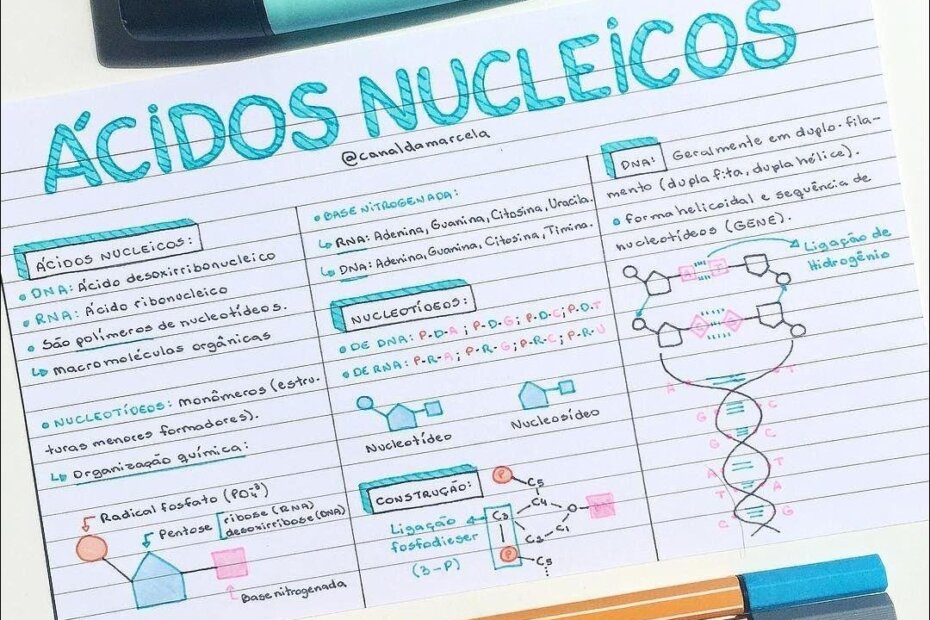 ÁCIDOS NUCLEICOS
@canaldamarcela
ÁCIDOS NUCLEICOS:
• DNA: Ácido desoxirribonucleico
• RNA: Ácido ribonucleico
• São polímeros de nucleotídeos.
↳ macromoléculas orgânicas
• NUCLEOTÍDEOS: monômeros (estru-
turas menores formadores).
↳ Organização química:
Radical fosfato (PO₄⁻³)
Pentose
ribose (RNA)
desoxirribose (DNA)
Base nitrogenada
• BASE NITROGENADA:
↳ RNA: Adenina, Guanina, Citosina, Uracila.
↳ DNA: Adenina, Guanina, Citosina, Timina.
NUCLEOTÍDEOS:
• DE DNA: P-D-A ; P-D-G ; P-D-C ; P-D-T
• DE RNA: P-R-A ; P-R-G ; P-R-C ; P-R-U
Nucleotídeo
Nucleosídeo
CONSTRUÇÃO:
Ligação
fosfodieser
(3-P)
P
C5
C4
O
C3
C2
C1
P
C5
DNA: Geralmente em duplo-fila-
mento (dupla fita, dupla hélice).
• forma helicoidal e sequência de
nucleotídeos (GENE).
Ligação de
Hidrogênio
A T
G C
A T
G C
G C
A T
T A
C G